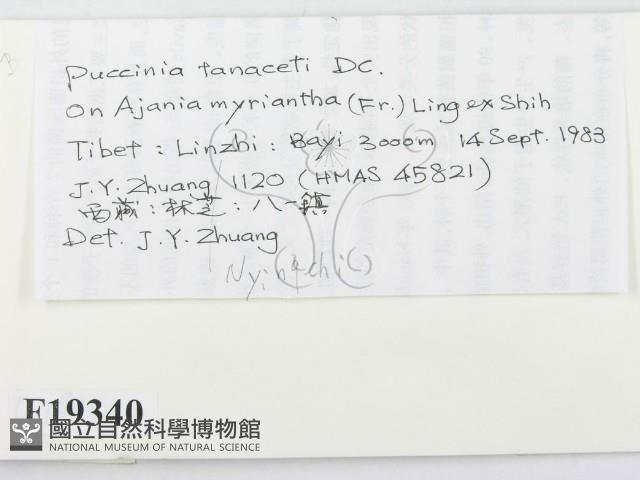 Puccinia tanaceti DC.
on Ajania myriantha (Fr.) Ling ex Shih
Tibet : Linzhi : Bayi 3000m 14 Sept. 1983
J.Y. Zhuang 1120 (HMAS 45821)
西藏：林芝：八一鎮
Det. J.Y. Zhuang
F19340
國立自然科學博物館
NATIONAL MUSEUM OF NATURAL SCIENCE